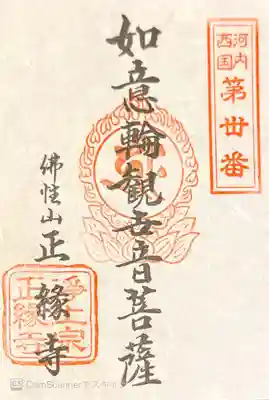 河内
西国
第丗番
如意輪観世音菩薩
佛性山
正縁寺
浄土宗
正縁寺
CS CamScanner でスキャン